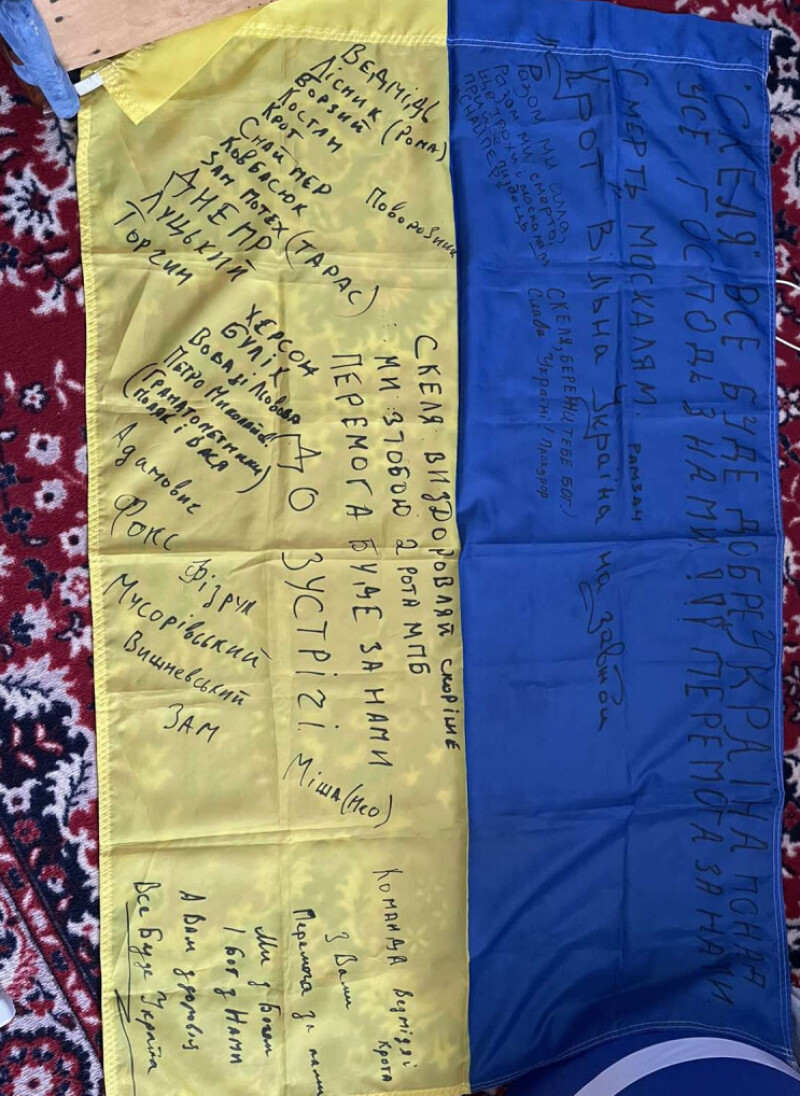 "СКЕЛЯ" ВСЕ БУДЕ ДОБРЕ УКРАЇНА ПОНАД
УСЕ ГОСПОДЬ З НАМИ!!! ПЕРЕМОГА ЗА НАМИ
СМЕРТЬ МОСКАЛЯМ. РАМЗАН
"КРОТ" Вільна Україна на завжди
СКЕЛЯ, БЕРЕЖИ ТЕБЕ БОГ!
Слава Україні! Прокурор
Разом ми сила,
Разом ми смерть,
ще трохи і москалям
прийде пиздець
СНАЙПЕР
СКЕЛЯ. ВИЗДОРОВЛЯЙ скоріше
МИ З ТОБОЮ 2 РОТА МПБ
ПЕРЕМОГА БУДЕ ЗА НАМИ
ДО ЗУСТРІЧІ.
Міша (Нео)
ВЕДМІДЬ
ЛІСНИК
БОРЗИЙ (РОМА)
КОСТЛИ
КРОТ
СНАЙПЕР
КОВБАСЮК
ЗАМ ПОТЕХ
ДНЕПР (ТАРАС)
ЛУЦЬКИЙ
ТОРЧИН
Поворозник
ХЕРСОН
БУЛІК
ВОВА ЗІ ЛЬВОВА
ПЕТРО МИКОЛАЇВ
(ГРАНАТОМЕТНИКИ)
(ПОЛЯК І ВАСЯ)
Адамович
Фокс
Фізрук
Мусорівський
Вишневський
ЗАМ
КОМАНДА Ведмідя і
Крота
З Вами
Перемога за нами
Ми з Богом
І Бог з Нами
А Вам здоровя
Все Буде Україна